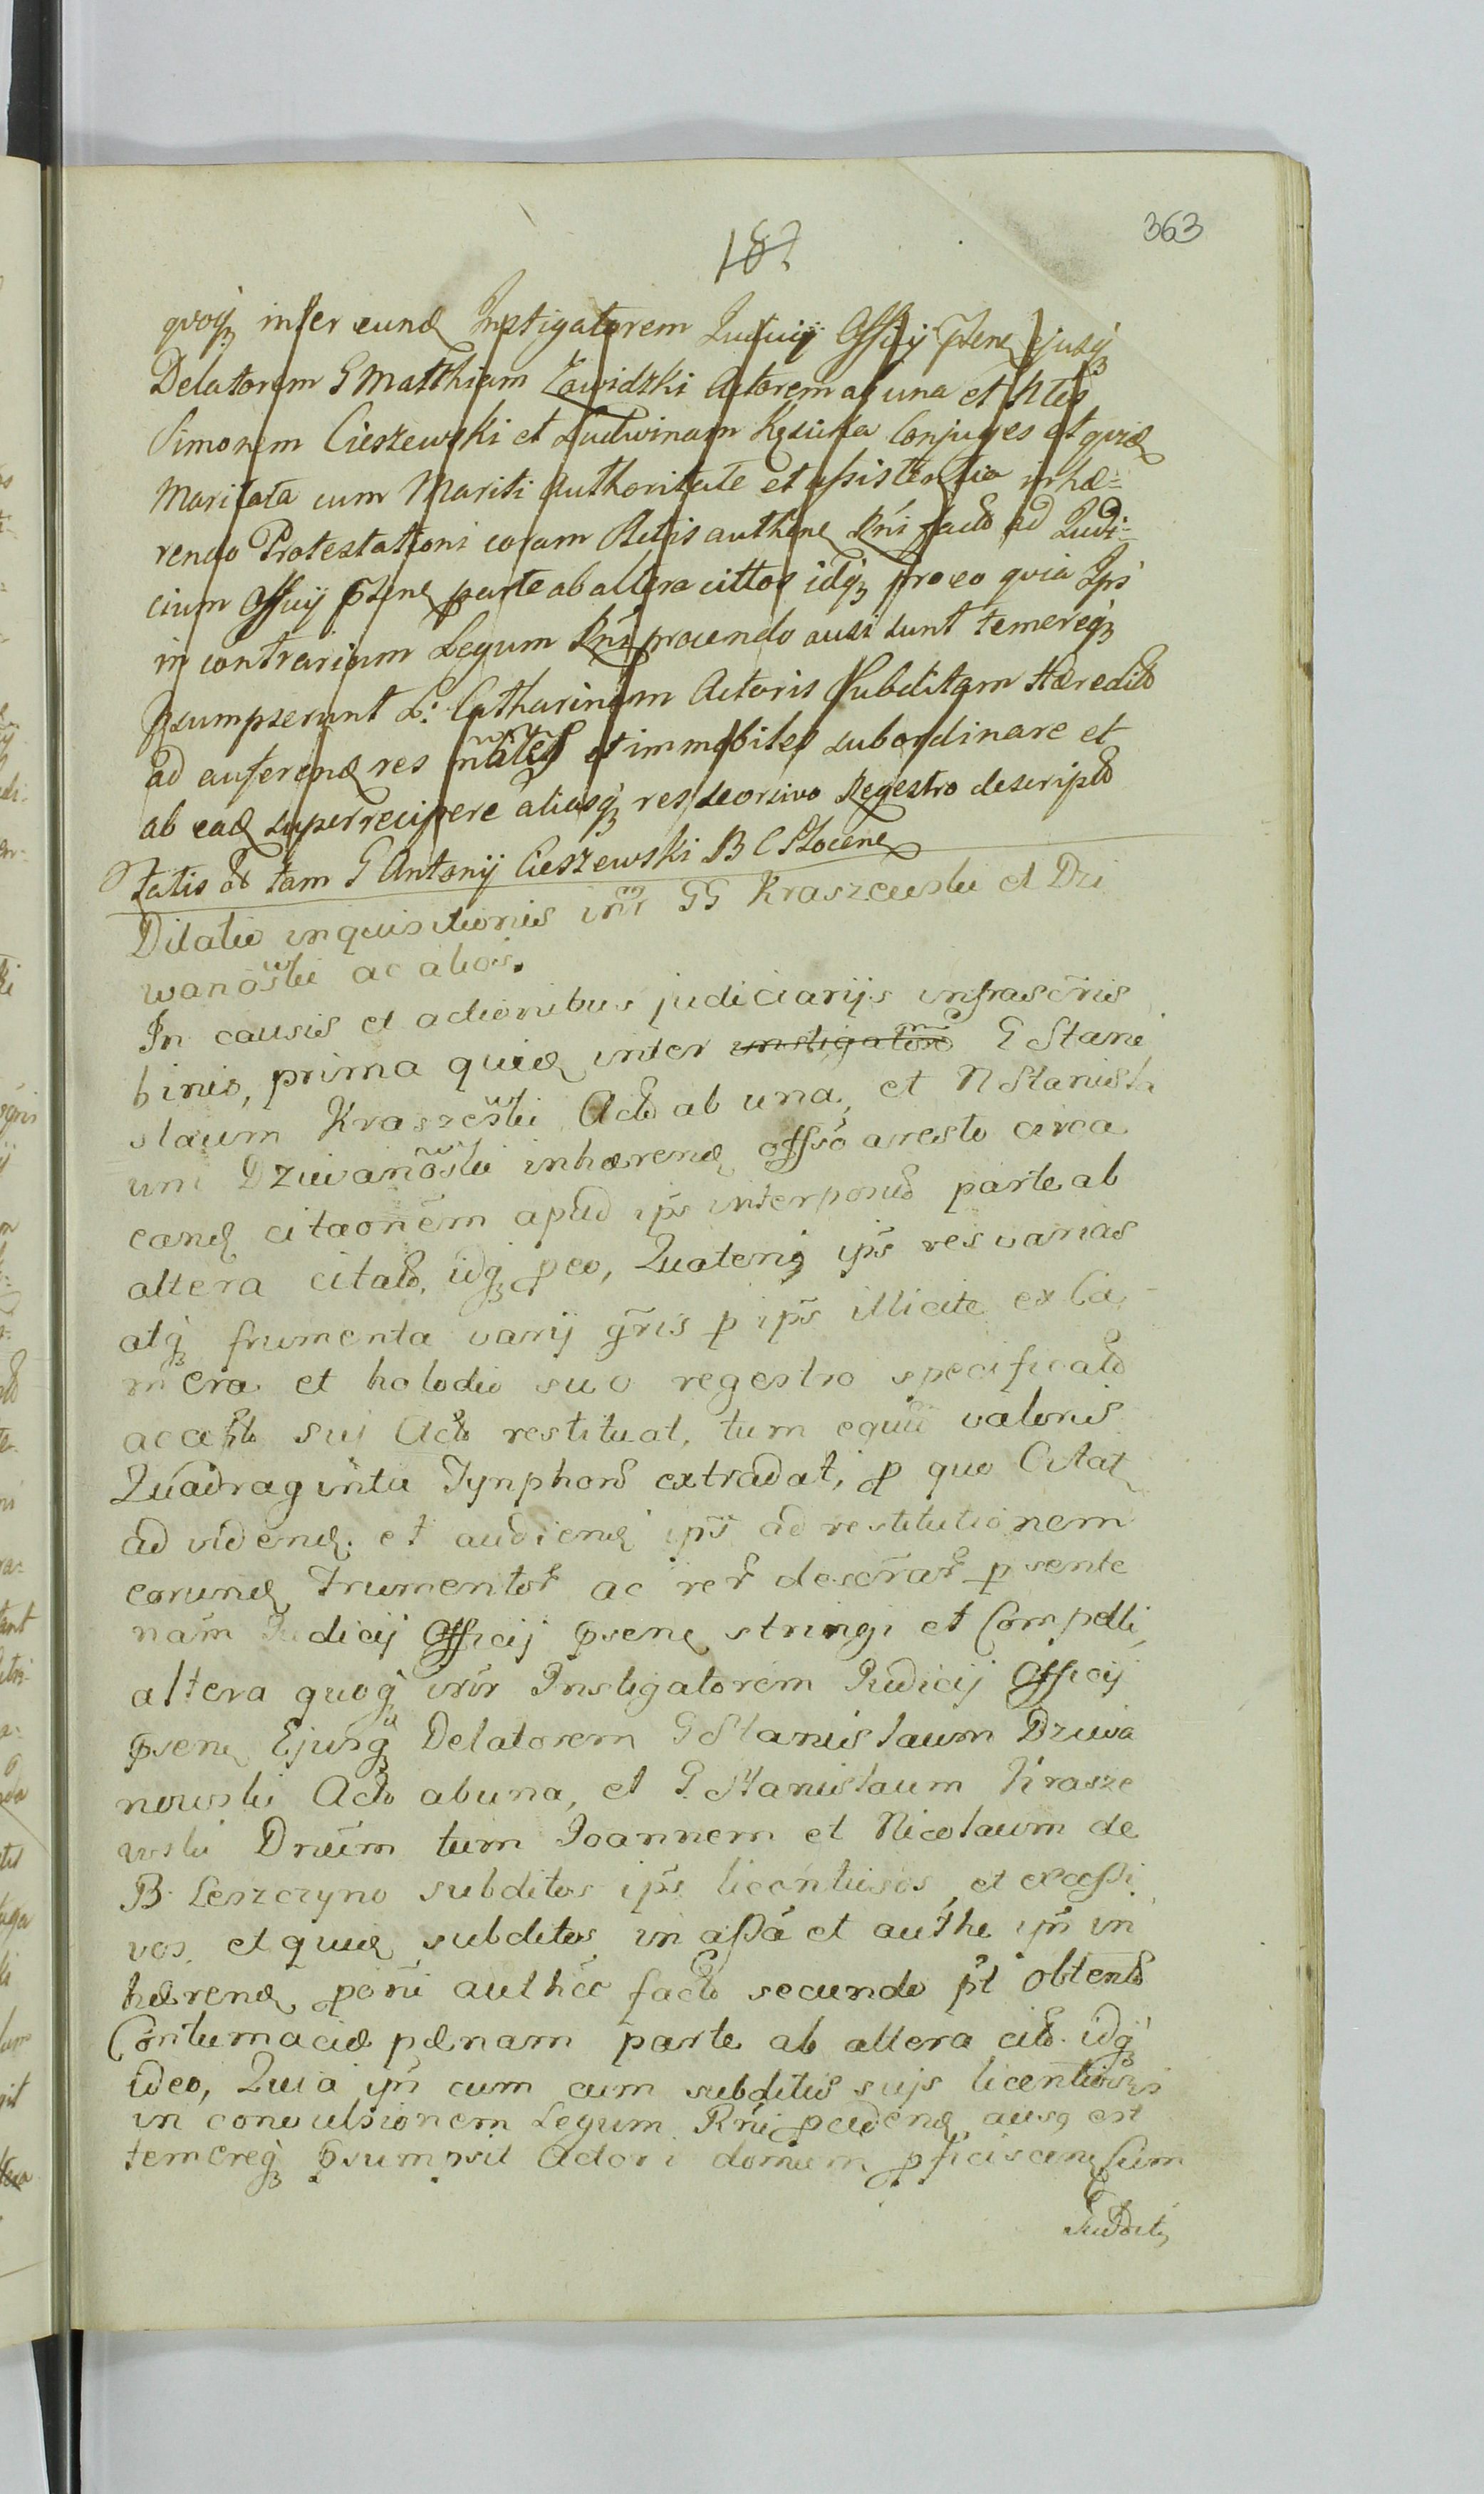 363
187
qvoqꝫ inter eund Instigatorem Judicij Officij pszens ejusqꝫ
Delatorem G Matthiam Zawidzki Actorem ab una et Nles
Simonem Cieszewski et Ludwinam Conjuges et qvid
Maritata cum Mariti Authoritate et assistentia inhæ=
rendo Protestationi coram Actis authen Rni facto ad Judi=
cium Officij pszens parte ab altera cittos idqꝫ pro eo qvia Ips
in contrarium Legum Rni procendo ausi sunt temereqꝫ
psumpserunt L: Catharinam Actoris Subditam Hæredito
ad auferend res mobiles et immobiles subordinare et
ab ead superrecipere aliasqꝫ res seorsivo Regestro descripto
Latis ad tam G Antonij Cieszewski B C Plocens
Dilatio inquisitionis intr GG Kraszewski et Dzi
wanowski ac alios.
In causis et actionibus judiciarijs infrascris
binis, prima quid inter instigatore G Stani
slaum Kraszewski Acto ab una, et N Stanisla
um Dziwanowski inhærend offso aresto circa
eand citaonem apud ips interposito parte ab
altera citato, idqꝫ peo, Quatenq ips res varias
atqꝫ frumenta varij gris p ips illicite ex Ca
mera et holodio suo regestro specificato
ac Acto restituat, tum equi valoris
Quadraginta Tynphor extradat, p quo Citat
ad vidend et audiend ips ad restitutionem
eorund frumentor ac rer descrar p sente
nam Judicij Officij psens stringi et Compelli,
altera quoqꝫ intr Instigatorem Judicij Officij
psens Ejusqꝫ Delatorem G Stanislaum Dziwa
nowski Acto ab una, et G Stanislaum Krasze
wski Dnum tum Joannem et Nicolaum de
B. Leszczyno subditos ips licentiosos et excessi
vos, et quid subditos in assa et authe ips in
hærend poni authcc facto secundo pt obtento
Contumaciæ pænam parte ab altera cito idqꝫ
ideo, Quia ips cum cum subditis suis licentiosis
in convulsionem Legum Rni pcedend ausq est
temereqꝫ psumpsit Actori domum pficiscens cum
Subditq